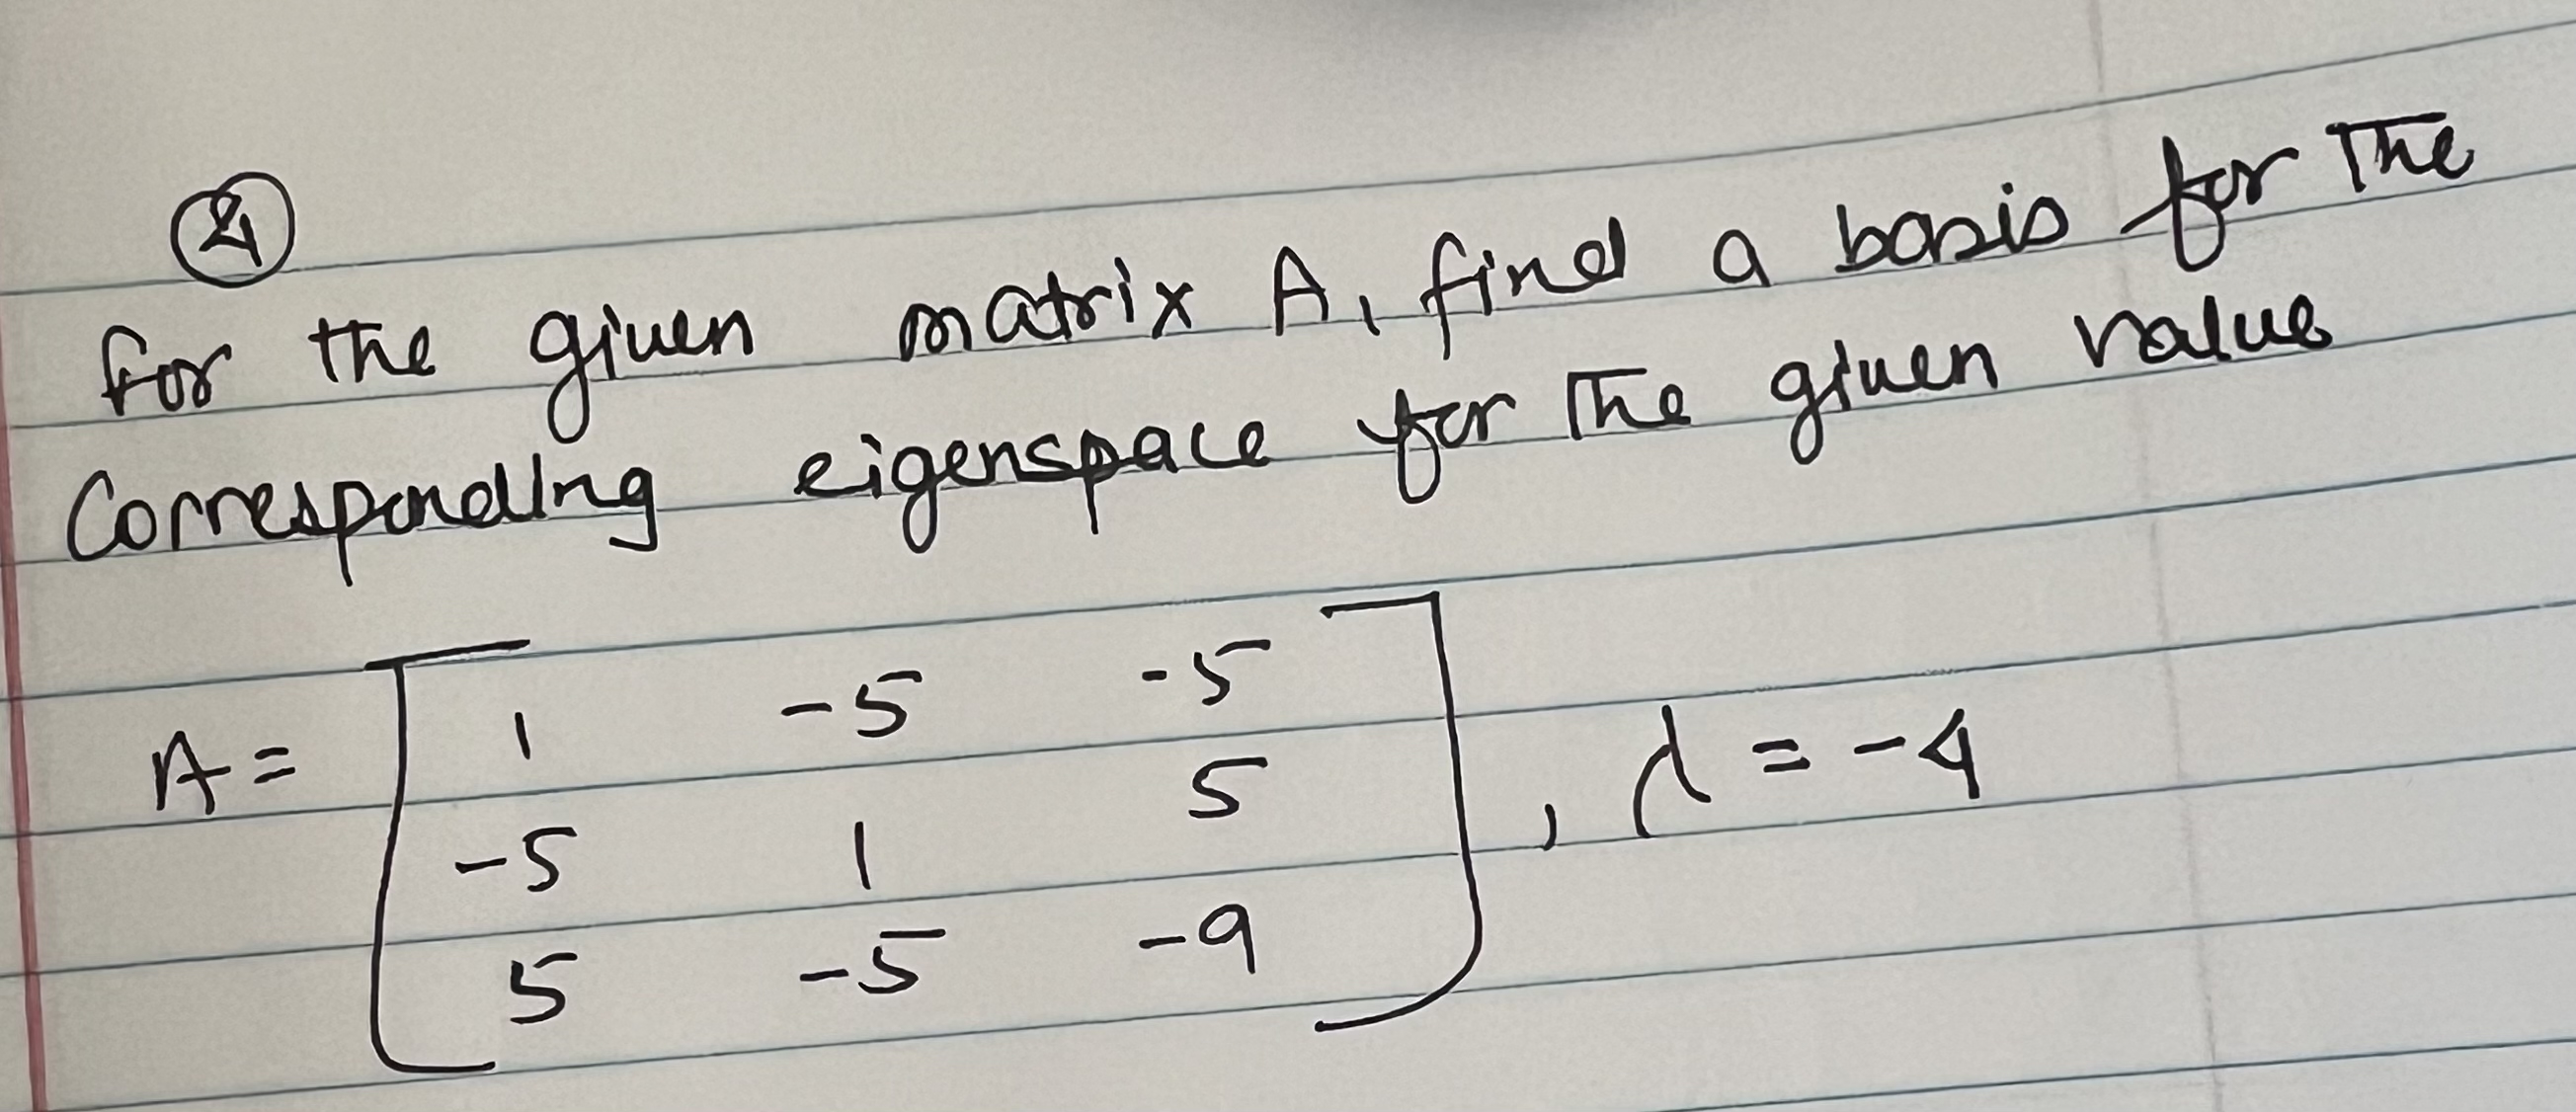 ④
for the given matrix A, find a basis for The
Corresponding eigenspace for The given value
A = [ 1 -5 -5
-5 1 5
5 -5 -9 ] , λ = -4